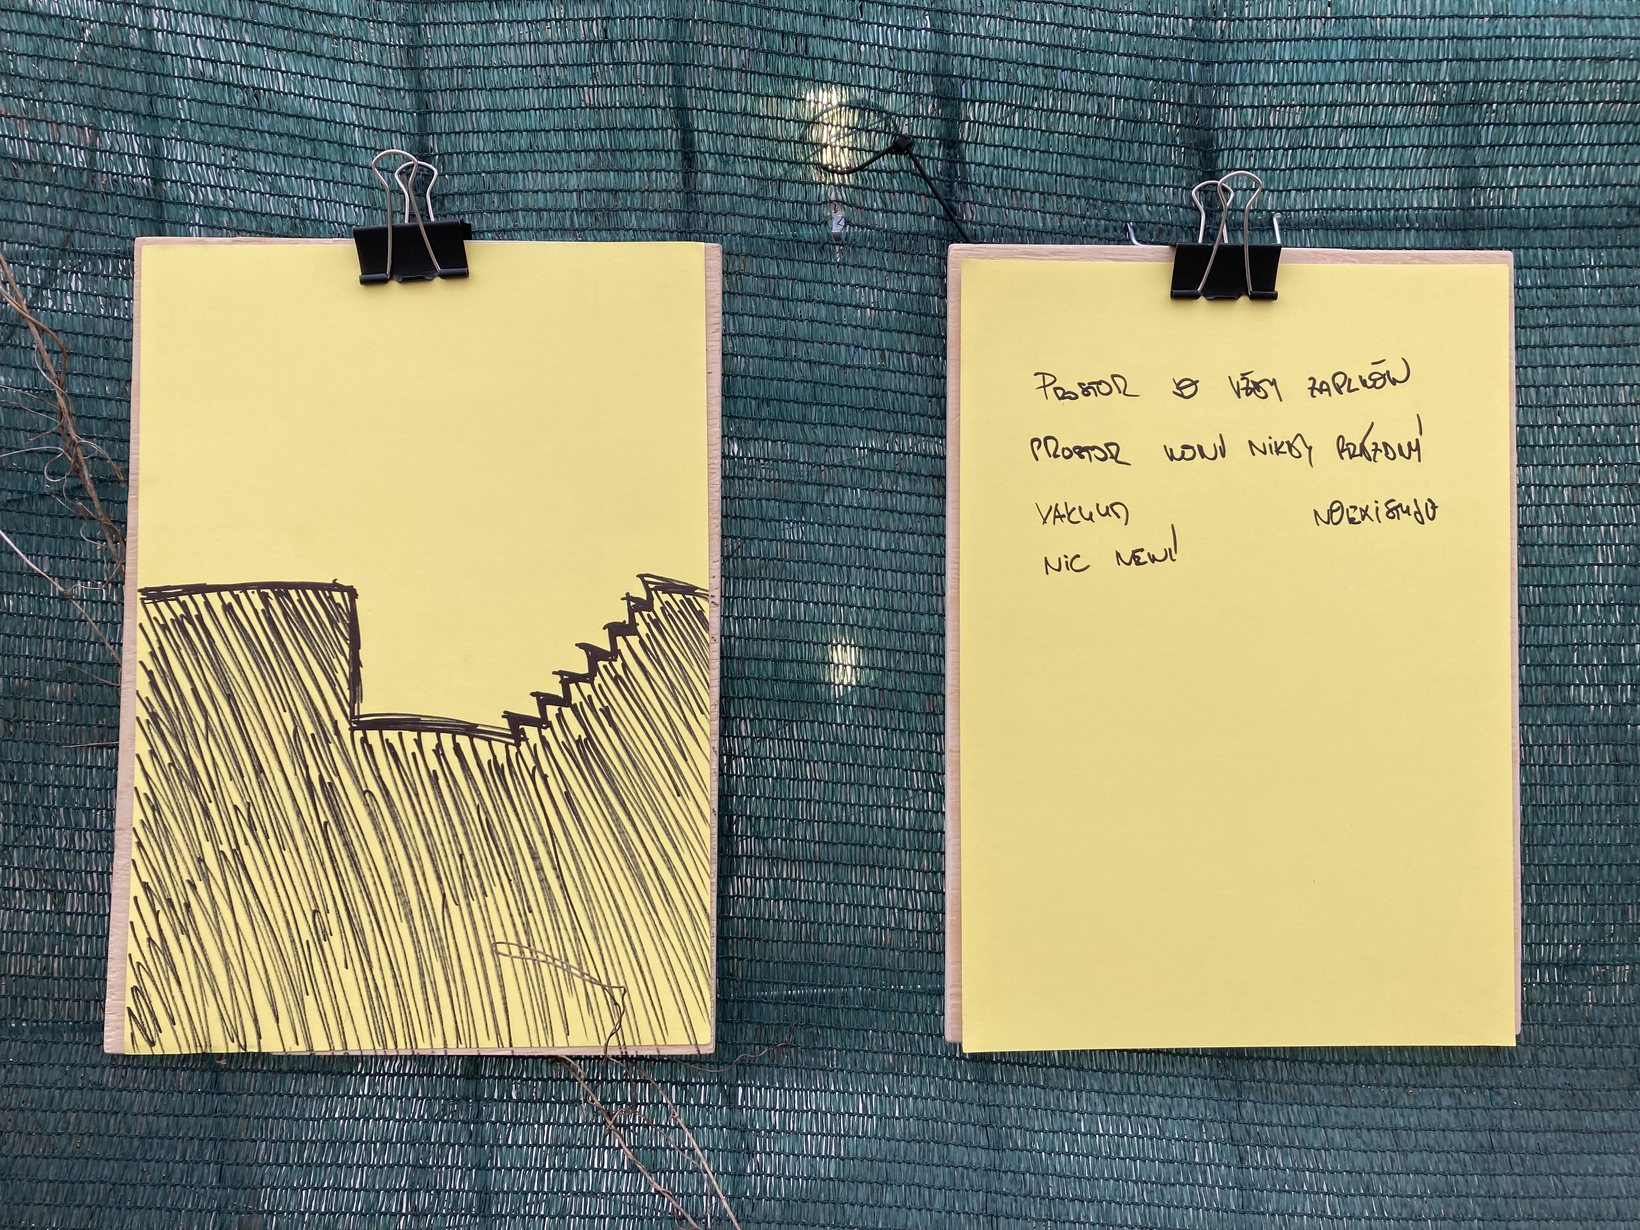 PROSTOR JE VŽDY ZAPLNĚN
PROSTOR NENÍ NIKDY PRÁZDNÝ
VAKUUM NEEXISTUJE
NIC NENÍ